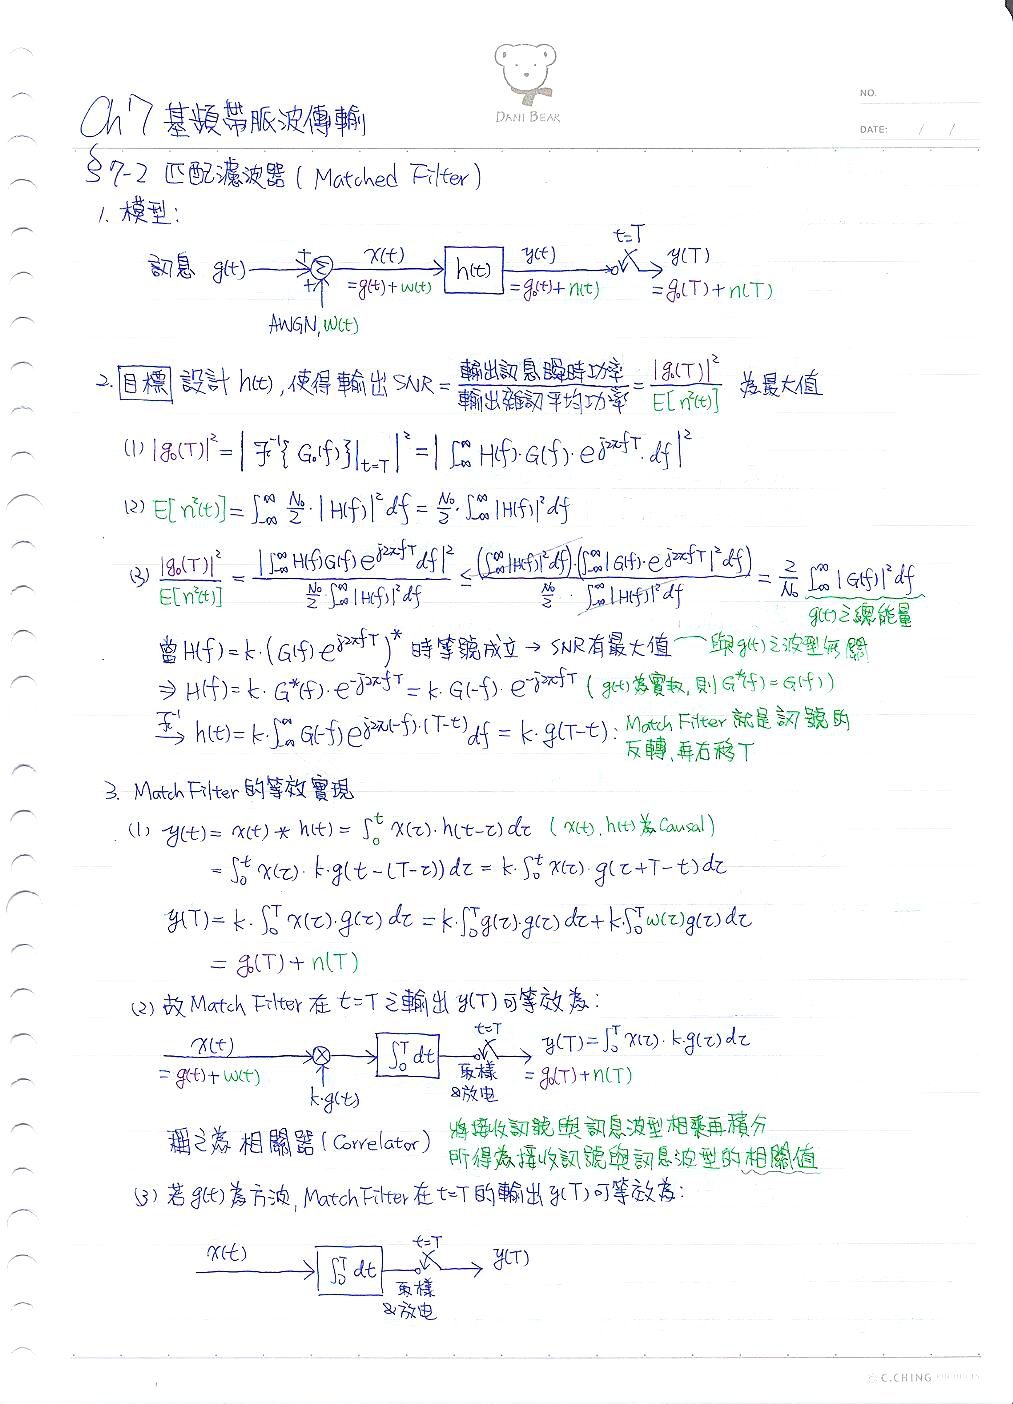 DANI BEAR
NO.
DATE: / /
Ch7 基頻帶脈波傳輸
§7-2 匹配濾波器 (Matched Filter)
1. 模型:
訊息 g(t) + Σ + x(t) =g(t)+w(t) h(t) y(t) =g₀(t)+n(t) t=T y(T) =g₀(T)+n(T)
AWGN, w(t)
2. 目標 設計 h(t), 使得輸出 SNR = 輸出訊息瞬時功率/輸出雜訊平均功率 = |g₀(T)|²/E[n²(t)] 為最大值
(1) |g₀(T)|² = | F⁻¹{G₀(f)}|t=T |² = | ∫_-∞^∞ H(f)·G(f)·e^{j2πfT}·df |²
(2) E[n²(t)] = ∫_-∞^∞ N₀/2 · |H(f)|² df = N₀/2 · ∫_-∞^∞ |H(f)|² df
(3) |g₀(T)|²/E[n²(t)] = |∫_-∞^∞ H(f)G(f)e^{j2πfT}df|² / (N₀/2 · ∫_-∞^∞ |H(f)|²df) ≤ (∫_-∞^∞ |H(f)|²df)·(∫_-∞^∞ |G(f)·e^{j2πfT}|²df) / (N₀/2 · ∫_-∞^∞ |H(f)|²df) = 2/N₀ ∫_-∞^∞ |G(f)|²df
g(t)之總能量
當 H(f)=k·(G(f)e^{j2πfT})* 時等號成立 → SNR有最大值 與g(t)之波型無關
⇒ H(f)=k·G*(f)·e^{-j2πfT} = k·G(-f)·e^{-j2πfT} (g(t)為實數, 則G*(f)=G(f))
F⁻¹→ h(t)=k·∫_-∞^∞ G(-f)e^{j2π(-f)·(T-t)}df = k·g(T-t): Match Filter 就是訊號的
反轉, 再右移T
3. Match Filter的等效實現
(1) y(t) = x(t) * h(t) = ∫₀^t x(τ)·h(t-τ)dτ (x(t), h(t)為Causal)
= ∫₀^t x(τ)·k·g(t-(T-τ))dτ = k·∫₀^t x(τ)·g(τ+T-t)dτ
y(T) = k·∫₀^T x(τ)·g(τ)dτ = k·∫₀^T g(τ)·g(τ)dτ+k·∫₀^T w(τ)g(τ)dτ
= g₀(T)+n(T)
(2) 故Match Filter 在 t=T 之輸出 y(T)可等效為:
x(t) =g(t)+w(t) ⊗ k·g(t) ∫₀^T dt t=T 取樣&放電 y(T)=∫₀^T x(τ)·k·g(τ)dτ
=g₀(T)+n(T)
稱之為 相關器 (Correlator) 將接收訊號與訊息波型相乘再積分
所得為接收訊號與訊息波型的相關值
(3) 若g(t)為方波, Match Filter 在t=T的輸出y(T)可等效為:
x(t) ∫₀^T dt t=T 取樣&放電 y(T)
C.CHING